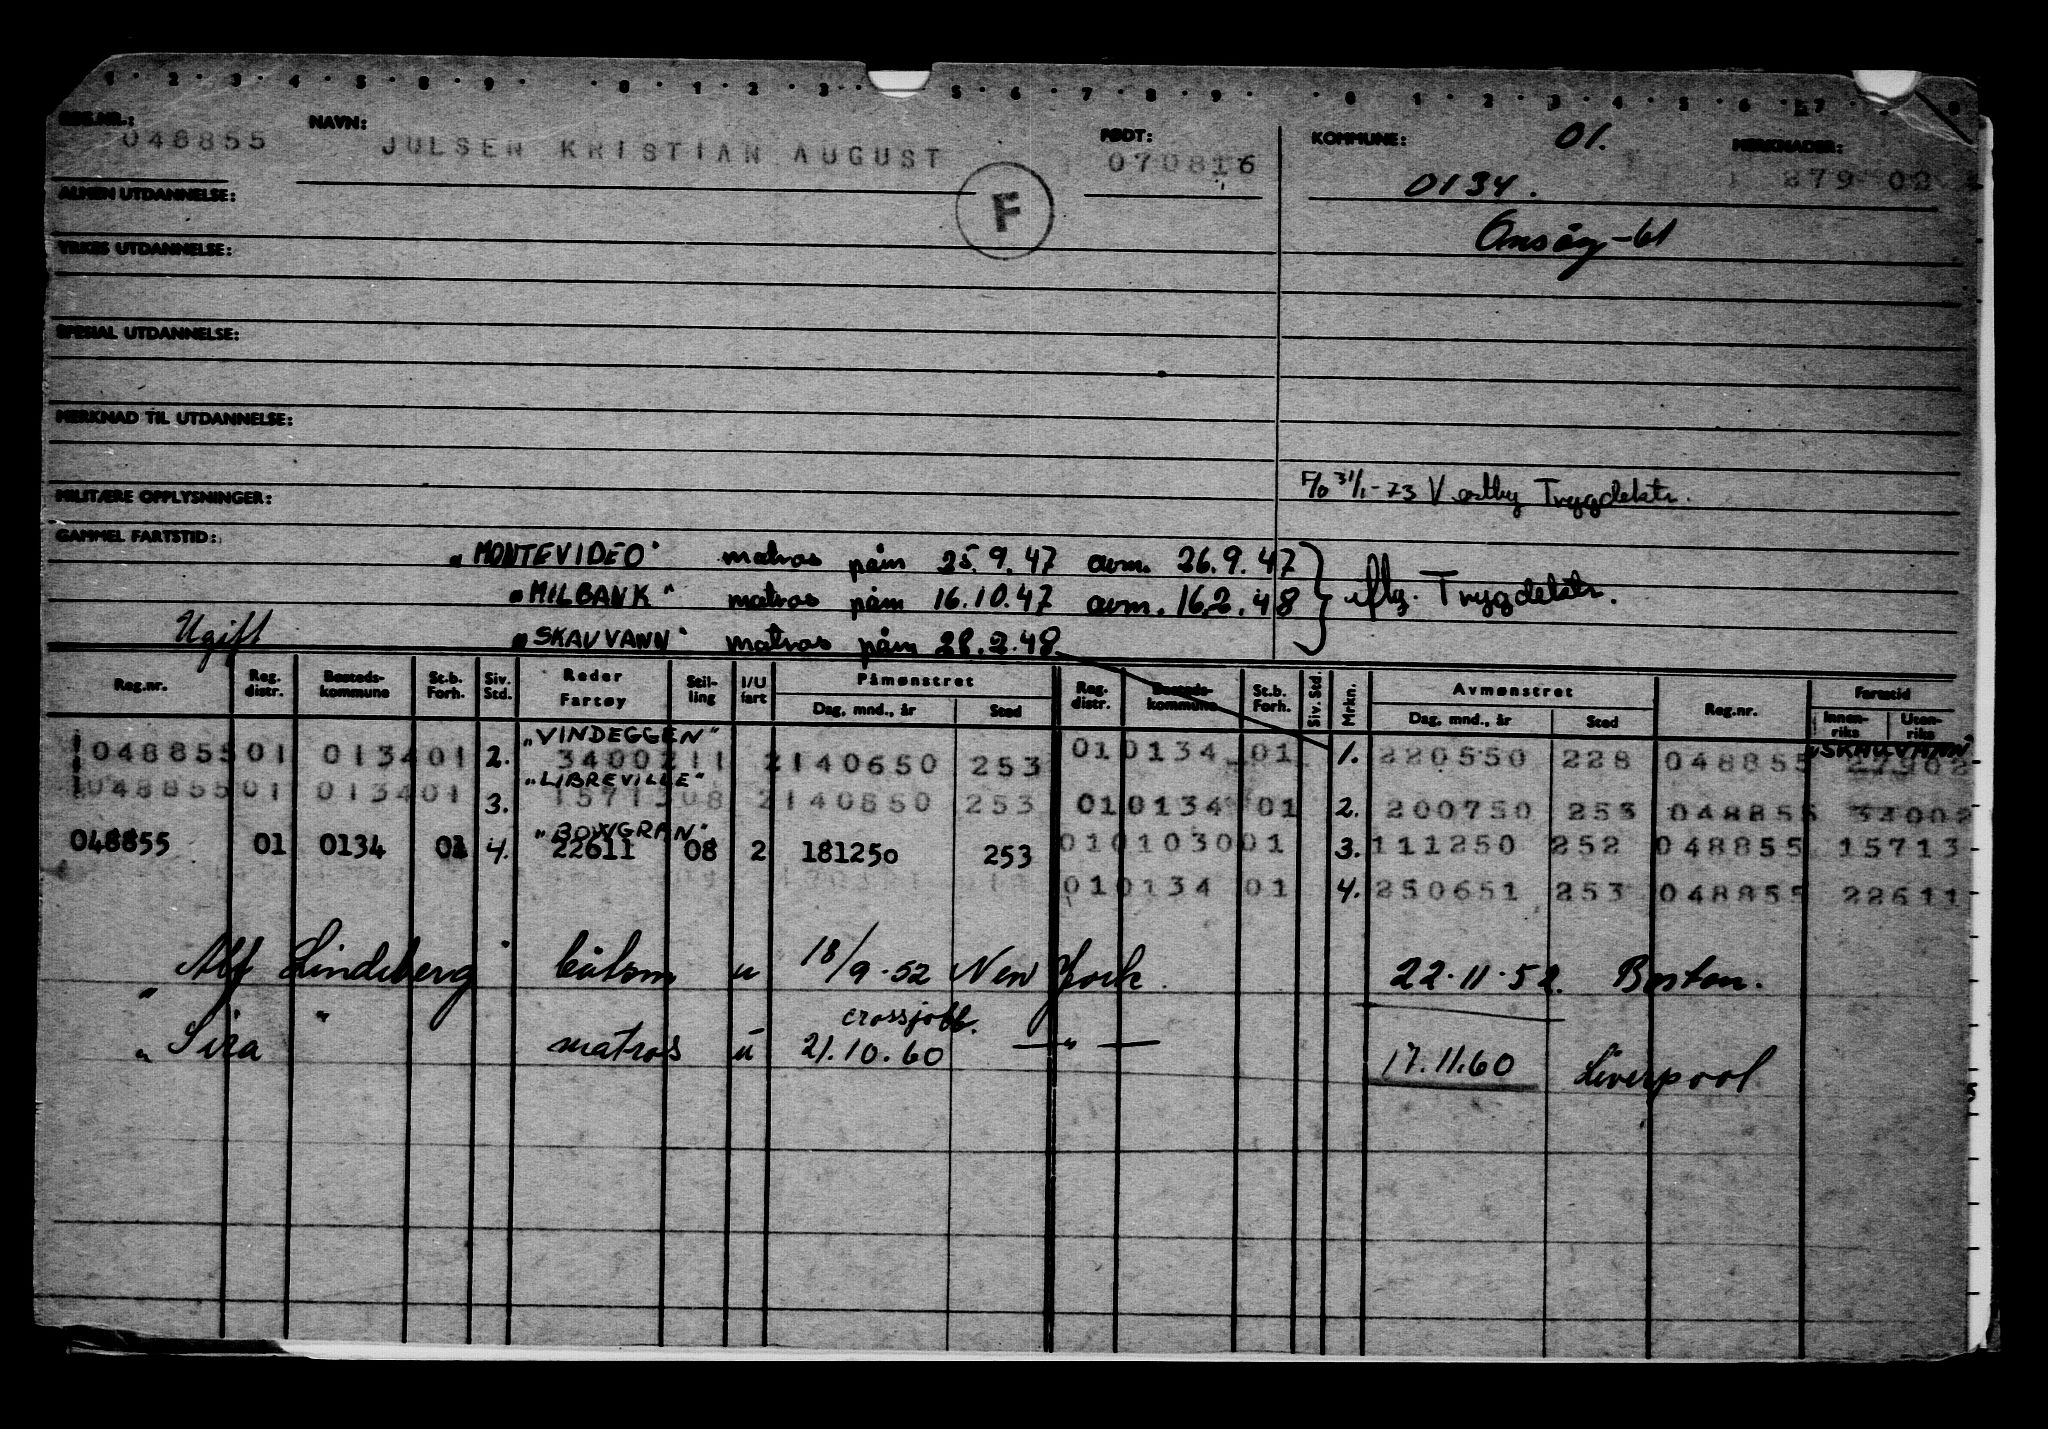 1 · 2 · 3 · 4 · 5 · 6 · 9 · · 0 · 1 · 2 · 3 · 5 · 6 · 7 · 8 · 9 · · 0 · 1 · 2 · 3 · 4 · 5 · 6 · 7
REG.NR.: NAVN: FØDT: KOMMUNE: 01. MERKNADER:
048855 JULSEN KRISTIAN AUGUST 070816 0134. 879 02
ALMEN UTDANNELSE: F Onsøy-61
YRKES UTDANNELSE:
SPESIAL UTDANNELSE:
MERKNAD TIL UTDANNELSE:
MILITÆRE OPPLYSNINGER: F/o 31/1-73 Vestby Trygdektr.
GAMMEL FARTSTID: „MONTEVIDEO" matros påm 25.9.47 avm. 26.9.47
„MILBANK" matros påm 16.10.47 avm. 16.2.48 iflg. Trygdektr.
Ugift „SKAUVANN" matros påm 28.2.48
Reg.nr. Reg. distr. Bosteds-kommune St.b. Forh. Siv. Std. Reder Fartøy Stil-ling I/U fart Påmønstret Dag, mnd., år Sted Reg. distr. Bosteds-kommune St.b. Forh. Siv. Std. Mrkn. Avmønstret Dag, mnd., år Sted Reg.nr. Fartstid Innen-riks Uten-riks
„VINDEGGEN" „SKAUVANN"
048855 01 0134 01 2. 34002 11 2 140650 253 01 0134 01 1. 220550 228 048855 27902
„LIBREVILLE"
048855 01 0134 01 3. 15713 08 2 140850 253 01 0134 01 2. 200750 253 048855 34002
„BOWGRAN"
048855 01 0134 01 4. 22611 08 2 181250 253 01 0103 001 3. 111250 252 048855 15713
01 0134 01 4. 250651 253 048855 22611
„ Alf Lindeberg " båtsm u 18/9-52 New York 22-11-52. Boston.
crossjobb.
„ Sira " matros u 21.10.60 —"— 17.11.60 Liverpool